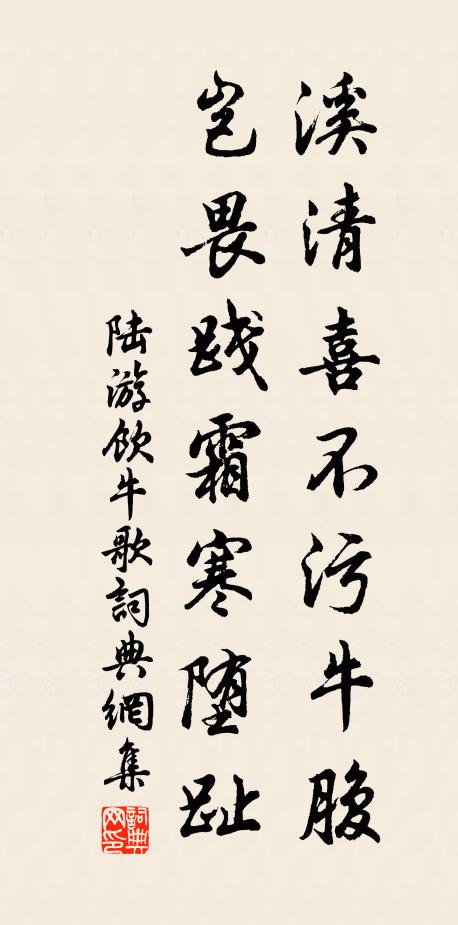 溪清喜不污牛腹
岂畏践霜寒堕趾
陆游饮牛歌詞典網集
詞典网印